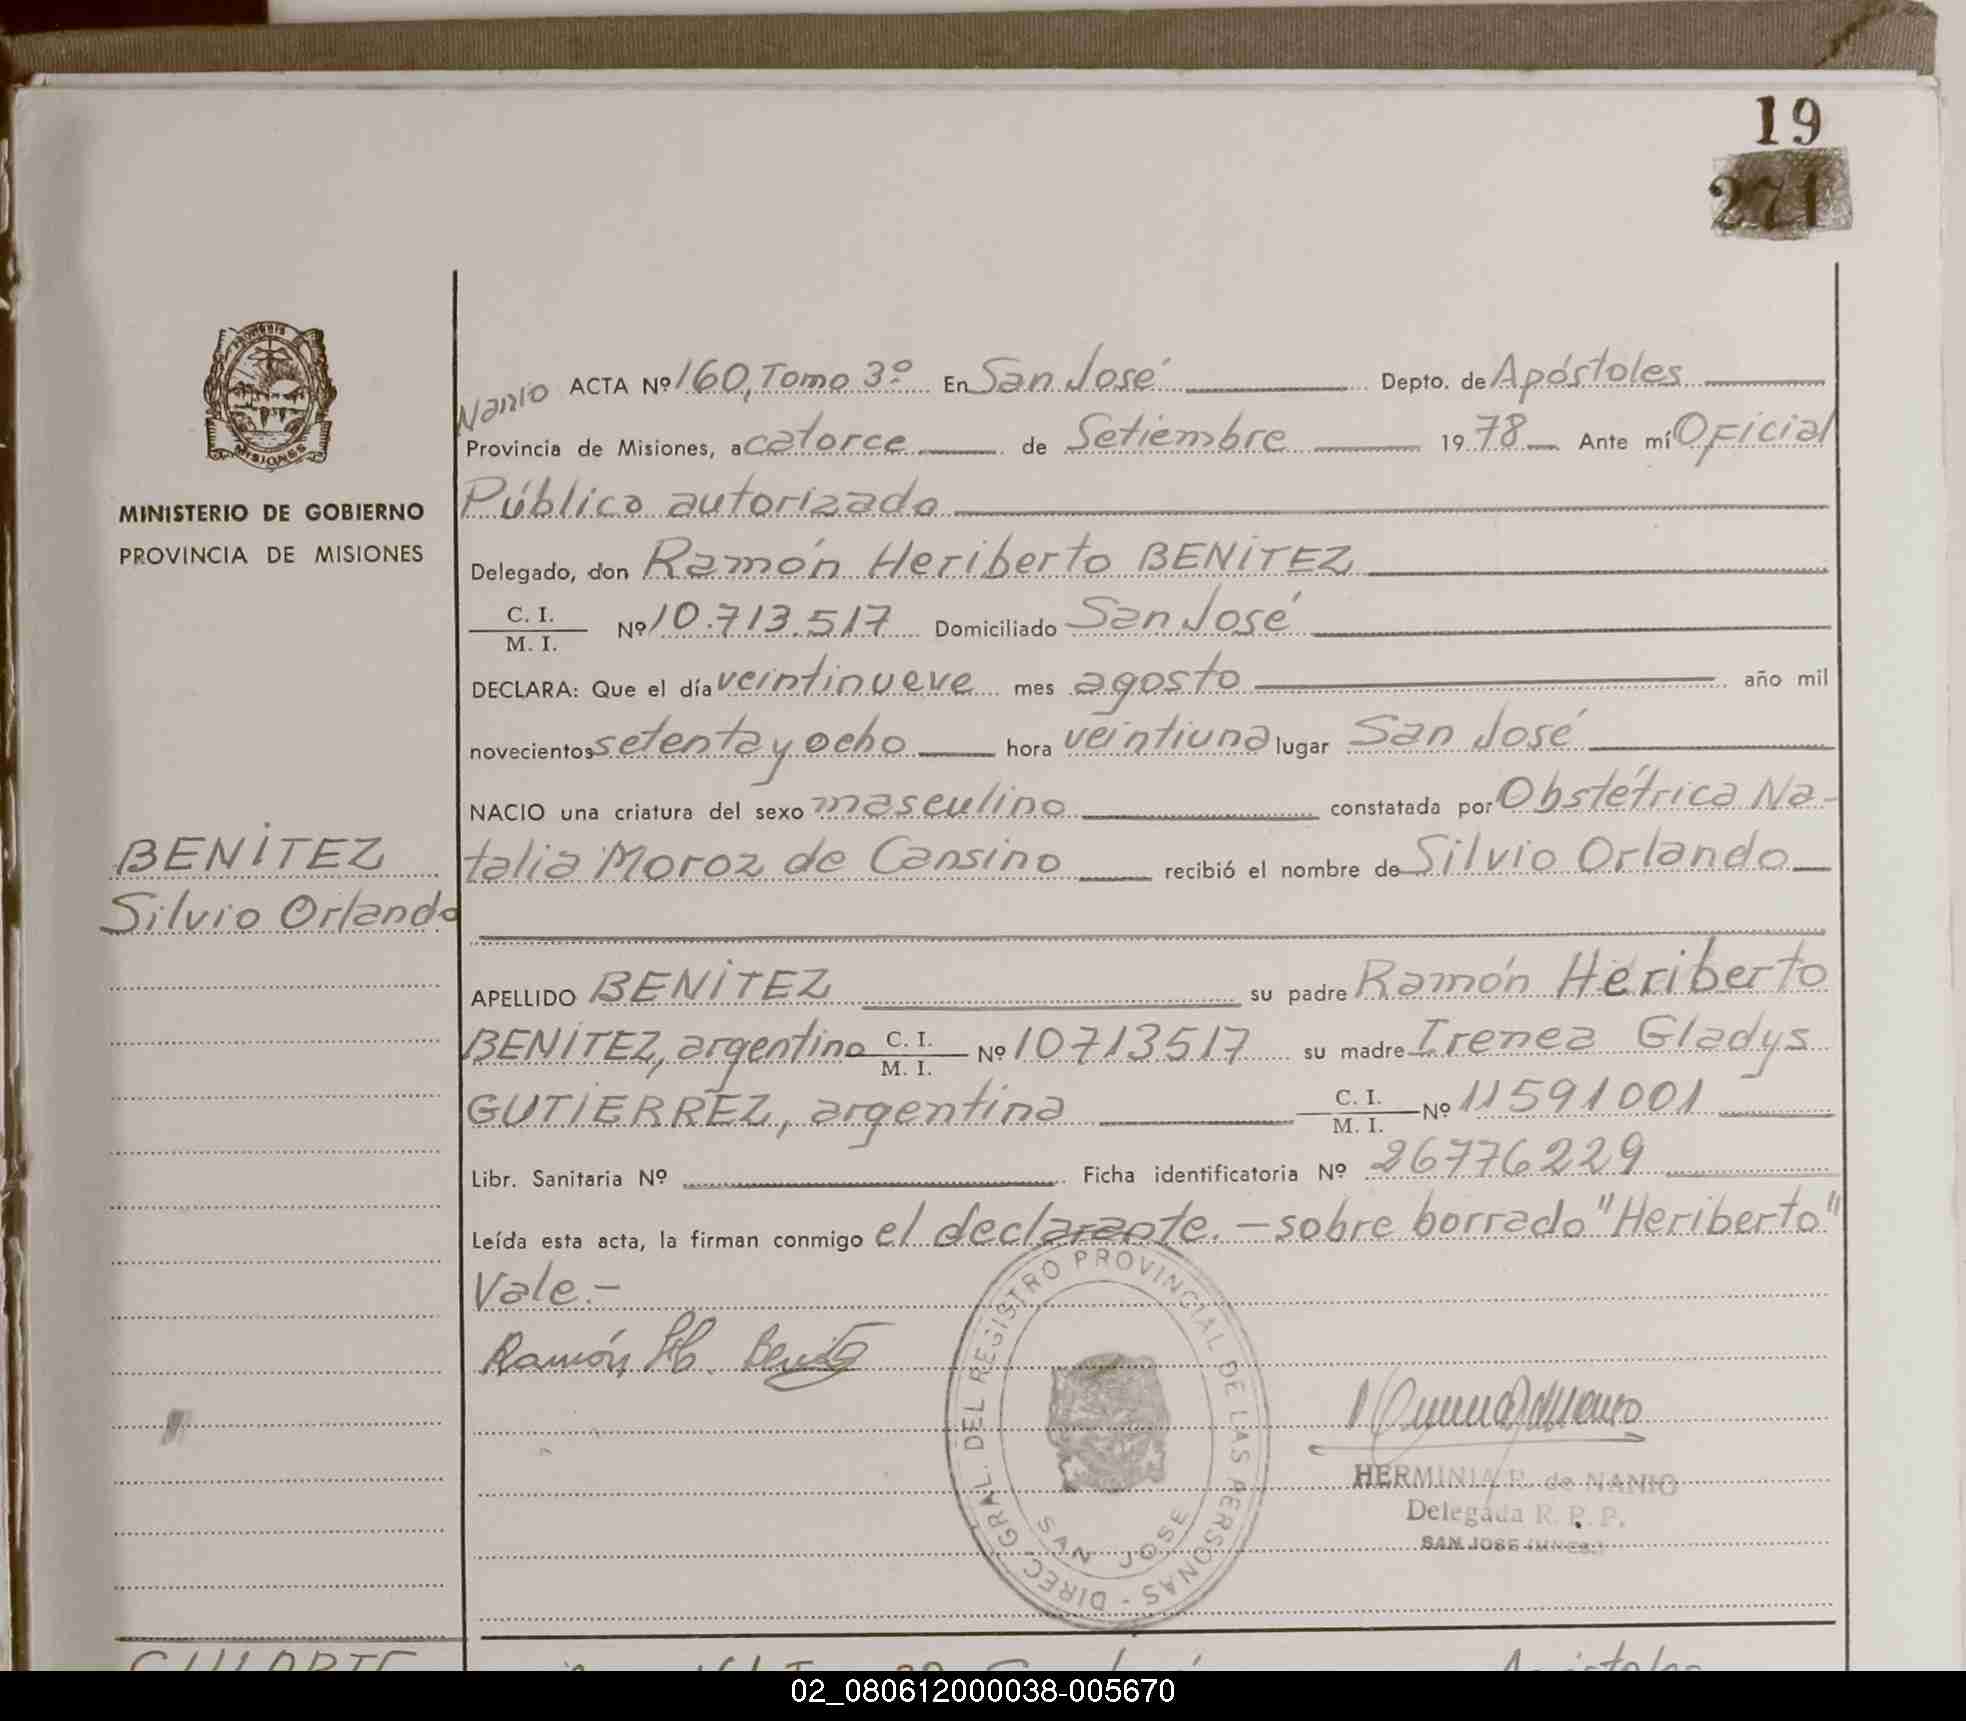 19
271
PROVINCIA
MISIONES
MINISTERIO DE GOBIERNO
PROVINCIA DE MISIONES
ACTA Nº 160, Tomo 3º En San José Depto. de Apóstoles
Nanio
Provincia de Misiones, a catorce de Setiembre 1978 Ante mí Oficial
Público autorizado
Delegado, don Ramón Heriberto BENITEZ
C. I.
M. I. Nº 10.713.517 Domiciliado San José
DECLARA: Que el día veintinueve mes agosto año mil
novecientos setenta y ocho hora veintiuna lugar San José
NACIO una criatura del sexo masculino constatada por Obstétrica Na-
talia Moroz de Cansino recibió el nombre de Silvio Orlando
BENITEZ
Silvio Orlando
APELLIDO BENITEZ su padre Ramón Heriberto
BENITEZ, argentino C. I. M. I. Nº 10713517 su madre Irenea Gladys
GUTIERREZ, argentina C. I. M. I. Nº 11591001
Libr. Sanitaria Nº Ficha identificatoria Nº 26776229
Leída esta acta, la firman conmigo el declarante. — sobre borrado "Heriberto"
Vale.-
Ramón H. Benitez
DIREC. GRAL. DEL REGISTRO PROVINCIAL DE LAS PERSONAS -
SAN JOSE
HERMINIA P. de NANIO
Delegada R. P. P.
SAN JOSE (MNES.)
02_080612000038-005670